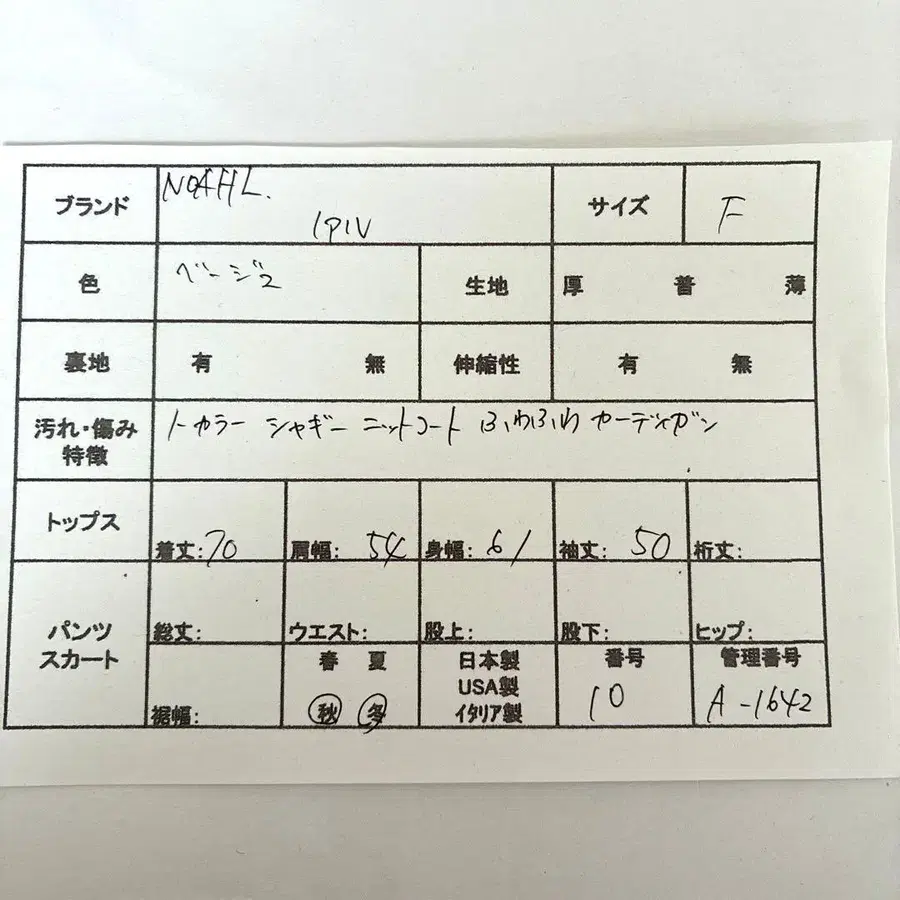 ブランド NOAHL. サイズ F
IPIV
色 ベージュ 生地 厚 普 薄
裏地 有 無 伸縮性 有 無
汚れ・傷み トカラー シャギー ニットコート ふわふわ カーディガン
特徴
トップス
着丈:70 肩幅: 54 身幅: 61 袖丈: 50 裄丈:
パンツ
スカート
総丈: ウエスト: 股上: 股下: ヒップ:
裾幅:
春 夏
秋 冬
日本製
USA製
イタリア製
番号
10
管理番号
A-1642